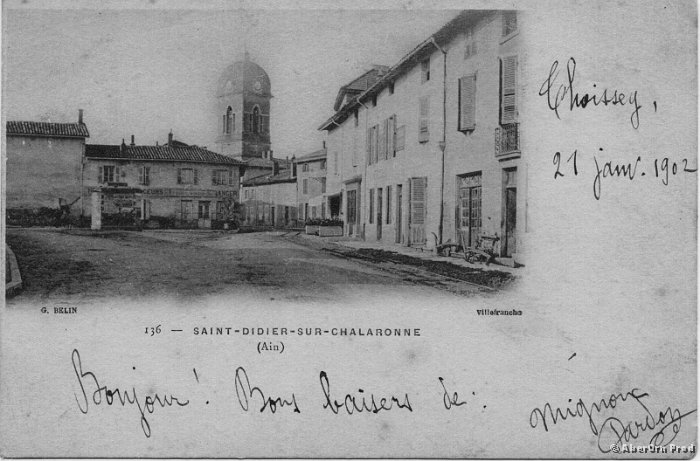 Thoissey,
21 janv. 1902
G. BELIN
Villefranche
136 — SAINT-DIDIER-SUR-CHALARONNE
(Ain)
Bonjour! Bons baisers de:
Mignonx
Pardon
© AberOrn Prod